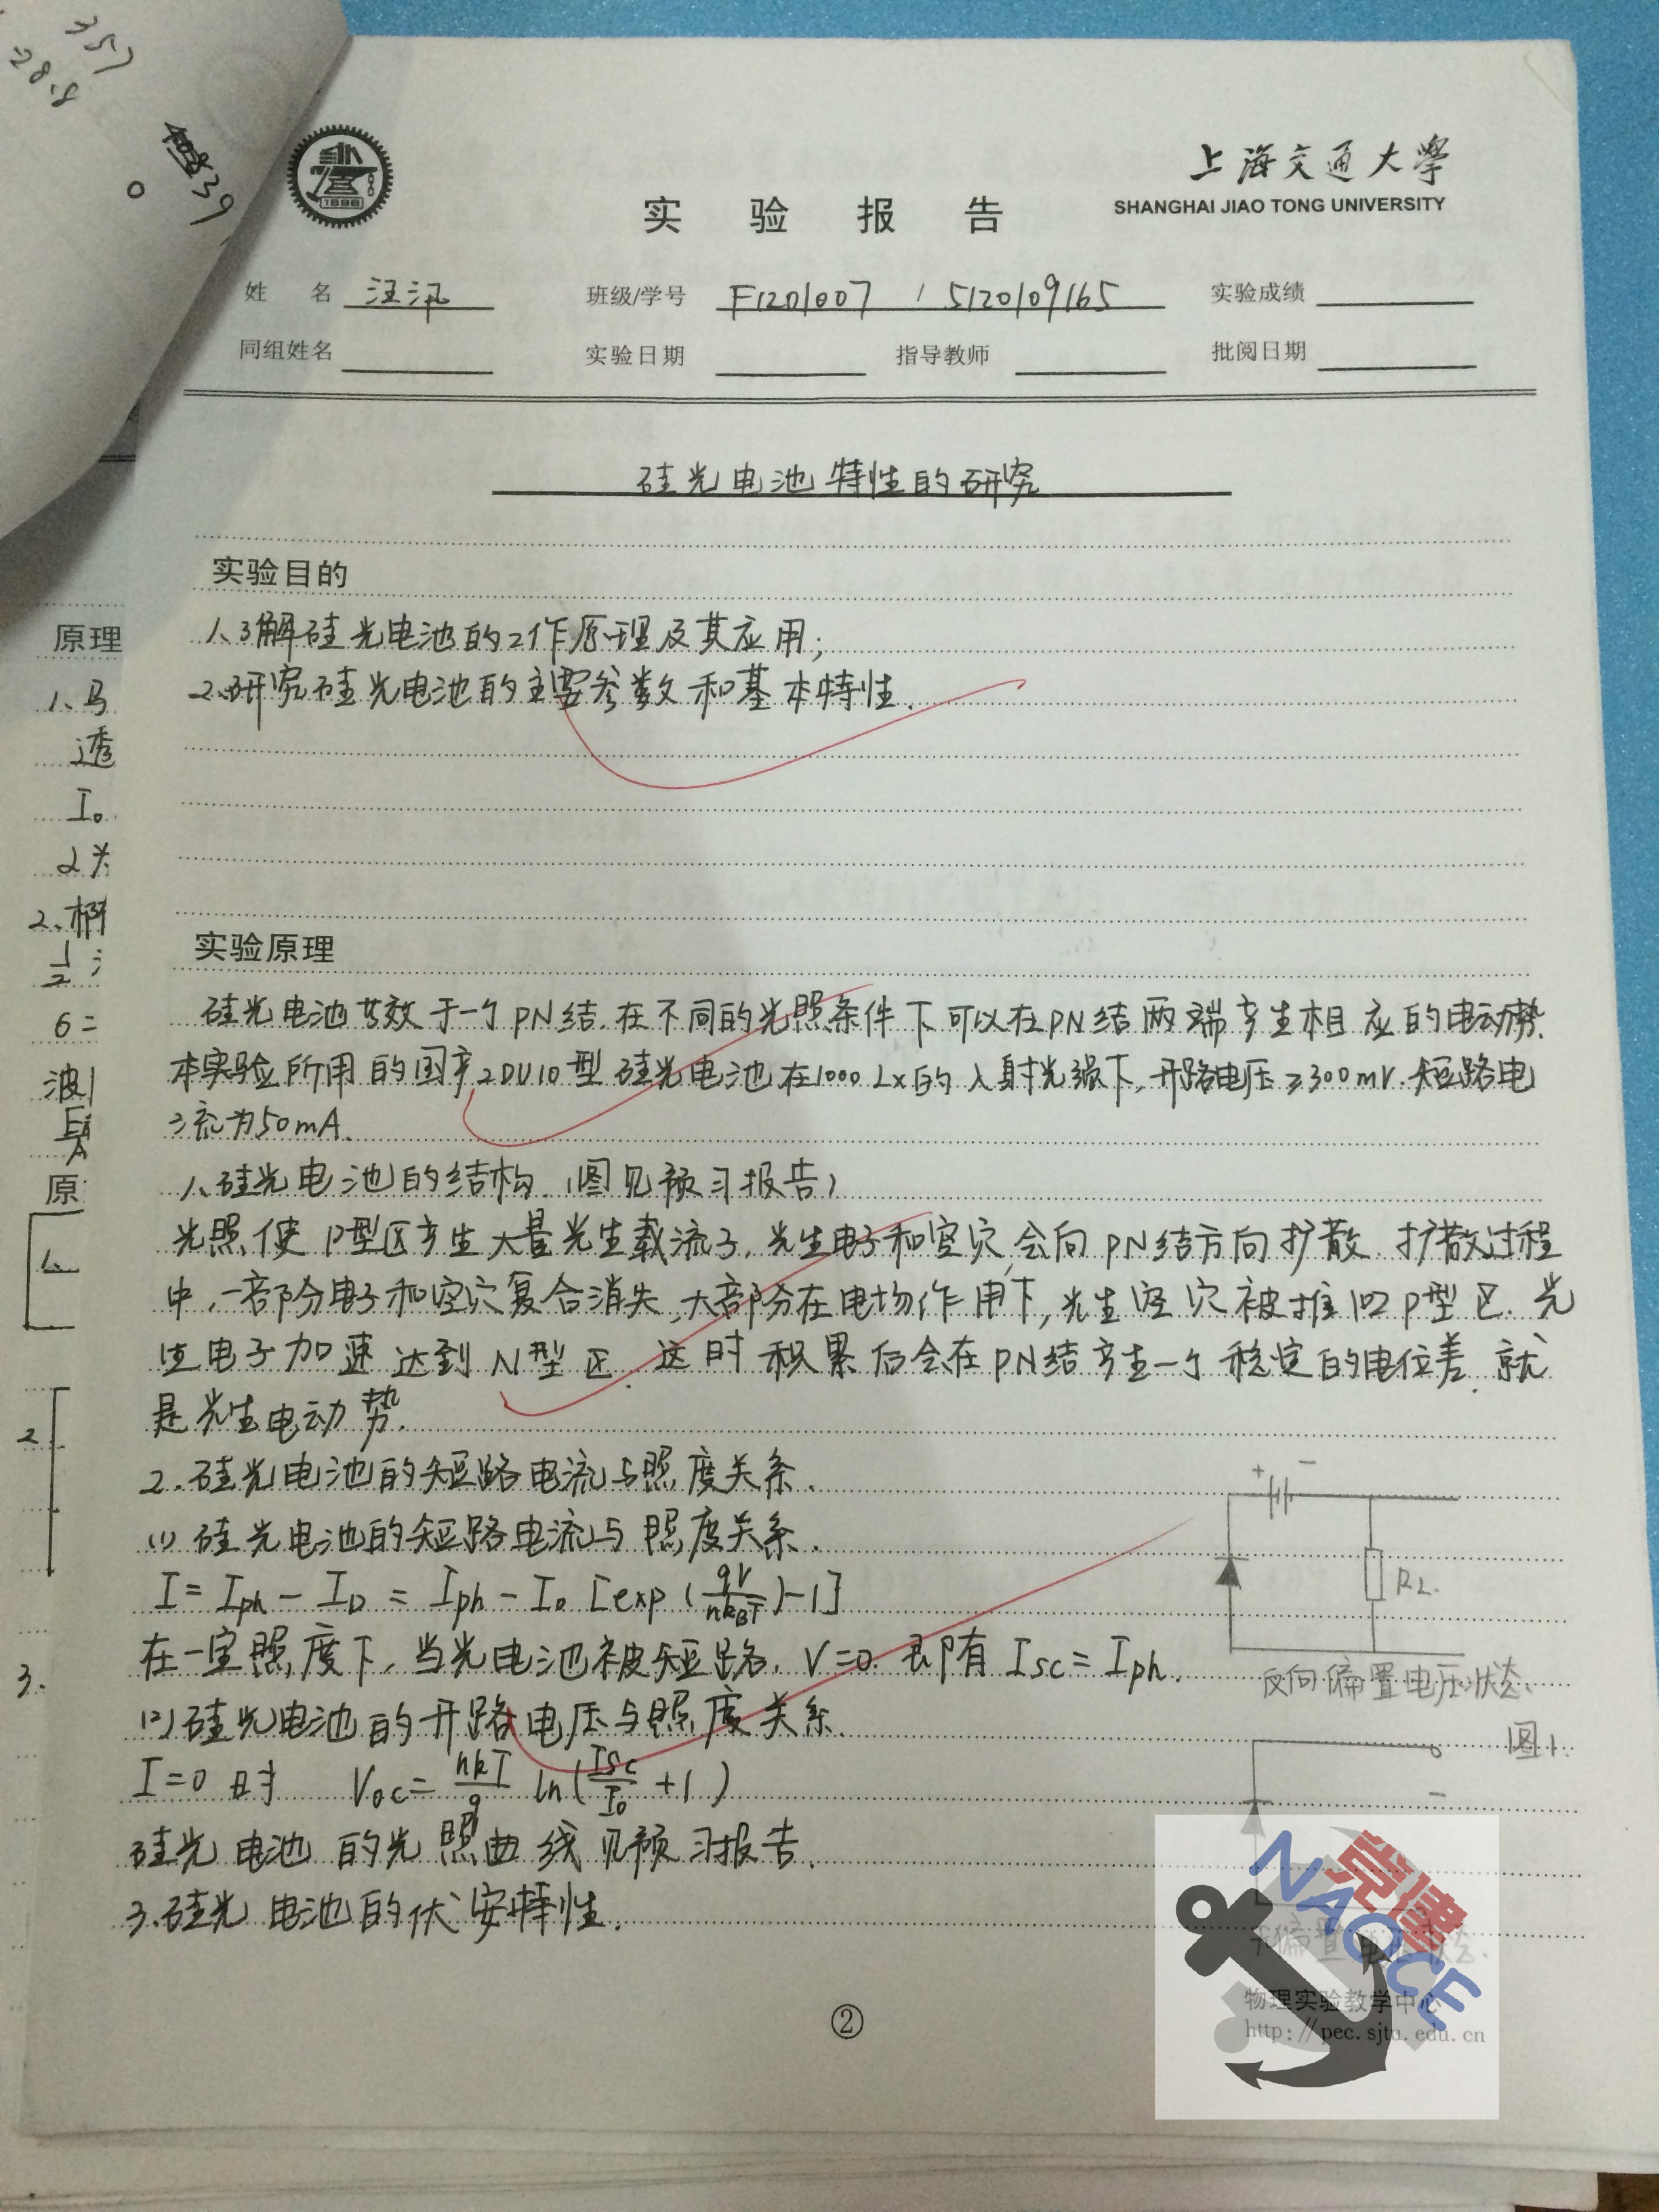 357
28.8
39
1896
上海交通大学
SHANGHAI JIAO TONG UNIVERSITY
实 验 报 告
姓 名 汪汛 班级/学号 F1201007 / 5120109165 实验成绩
同组姓名 实验日期 指导教师 批阅日期
硅光电池特性的研究
实验目的
1、了解硅光电池的工作原理及其应用;
2.研究硅光电池的主要参数和基本特性.
实验原理
硅光电池等效于一个PN结.在不同的光照条件下可以在PN结两端产生相应的电动势.
本实验所用的国产2DU10型硅光电池在1000Lx的入射光强下,开路电压≥300mV.短路电
流为50mA.
1、硅光电池的结构.(图见预习报告)
光照使P型区产生大量光生载流子.光生电子和空穴会向PN结方向扩散.扩散过程
中,一部分电子和空穴复合消失,大部分在电场作用下,光生空穴被推回P型区.光
生电子加速达到N型区.这时积累后会在PN结产生一个稳定的电位差.就
是光生电动势.
2.硅光电池的短路电流与照度关系.
(1)硅光电池的短路电流与照度关系.
I=Iph-ID=Iph-I0[exp(qV/nkBT)-1]
在一定照度下,当光电池被短路,V=0.即有Isc=Iph.
(2)硅光电池的开路电压与照度关系.
I=0时 Voc=nkT/q ln(Isc/I0+1)
硅光电池的光照曲线见预习报告.
3.硅光电池的伏安特性.
+ -
RL.
反向偏置电压状态.
图1.
-
党建
NAOCE
物理实验教学中心
http://pec.sjtu.edu.cn
②
原理
1、马
透
I0
2.
1/2
6=
波
原
1、
2
3.